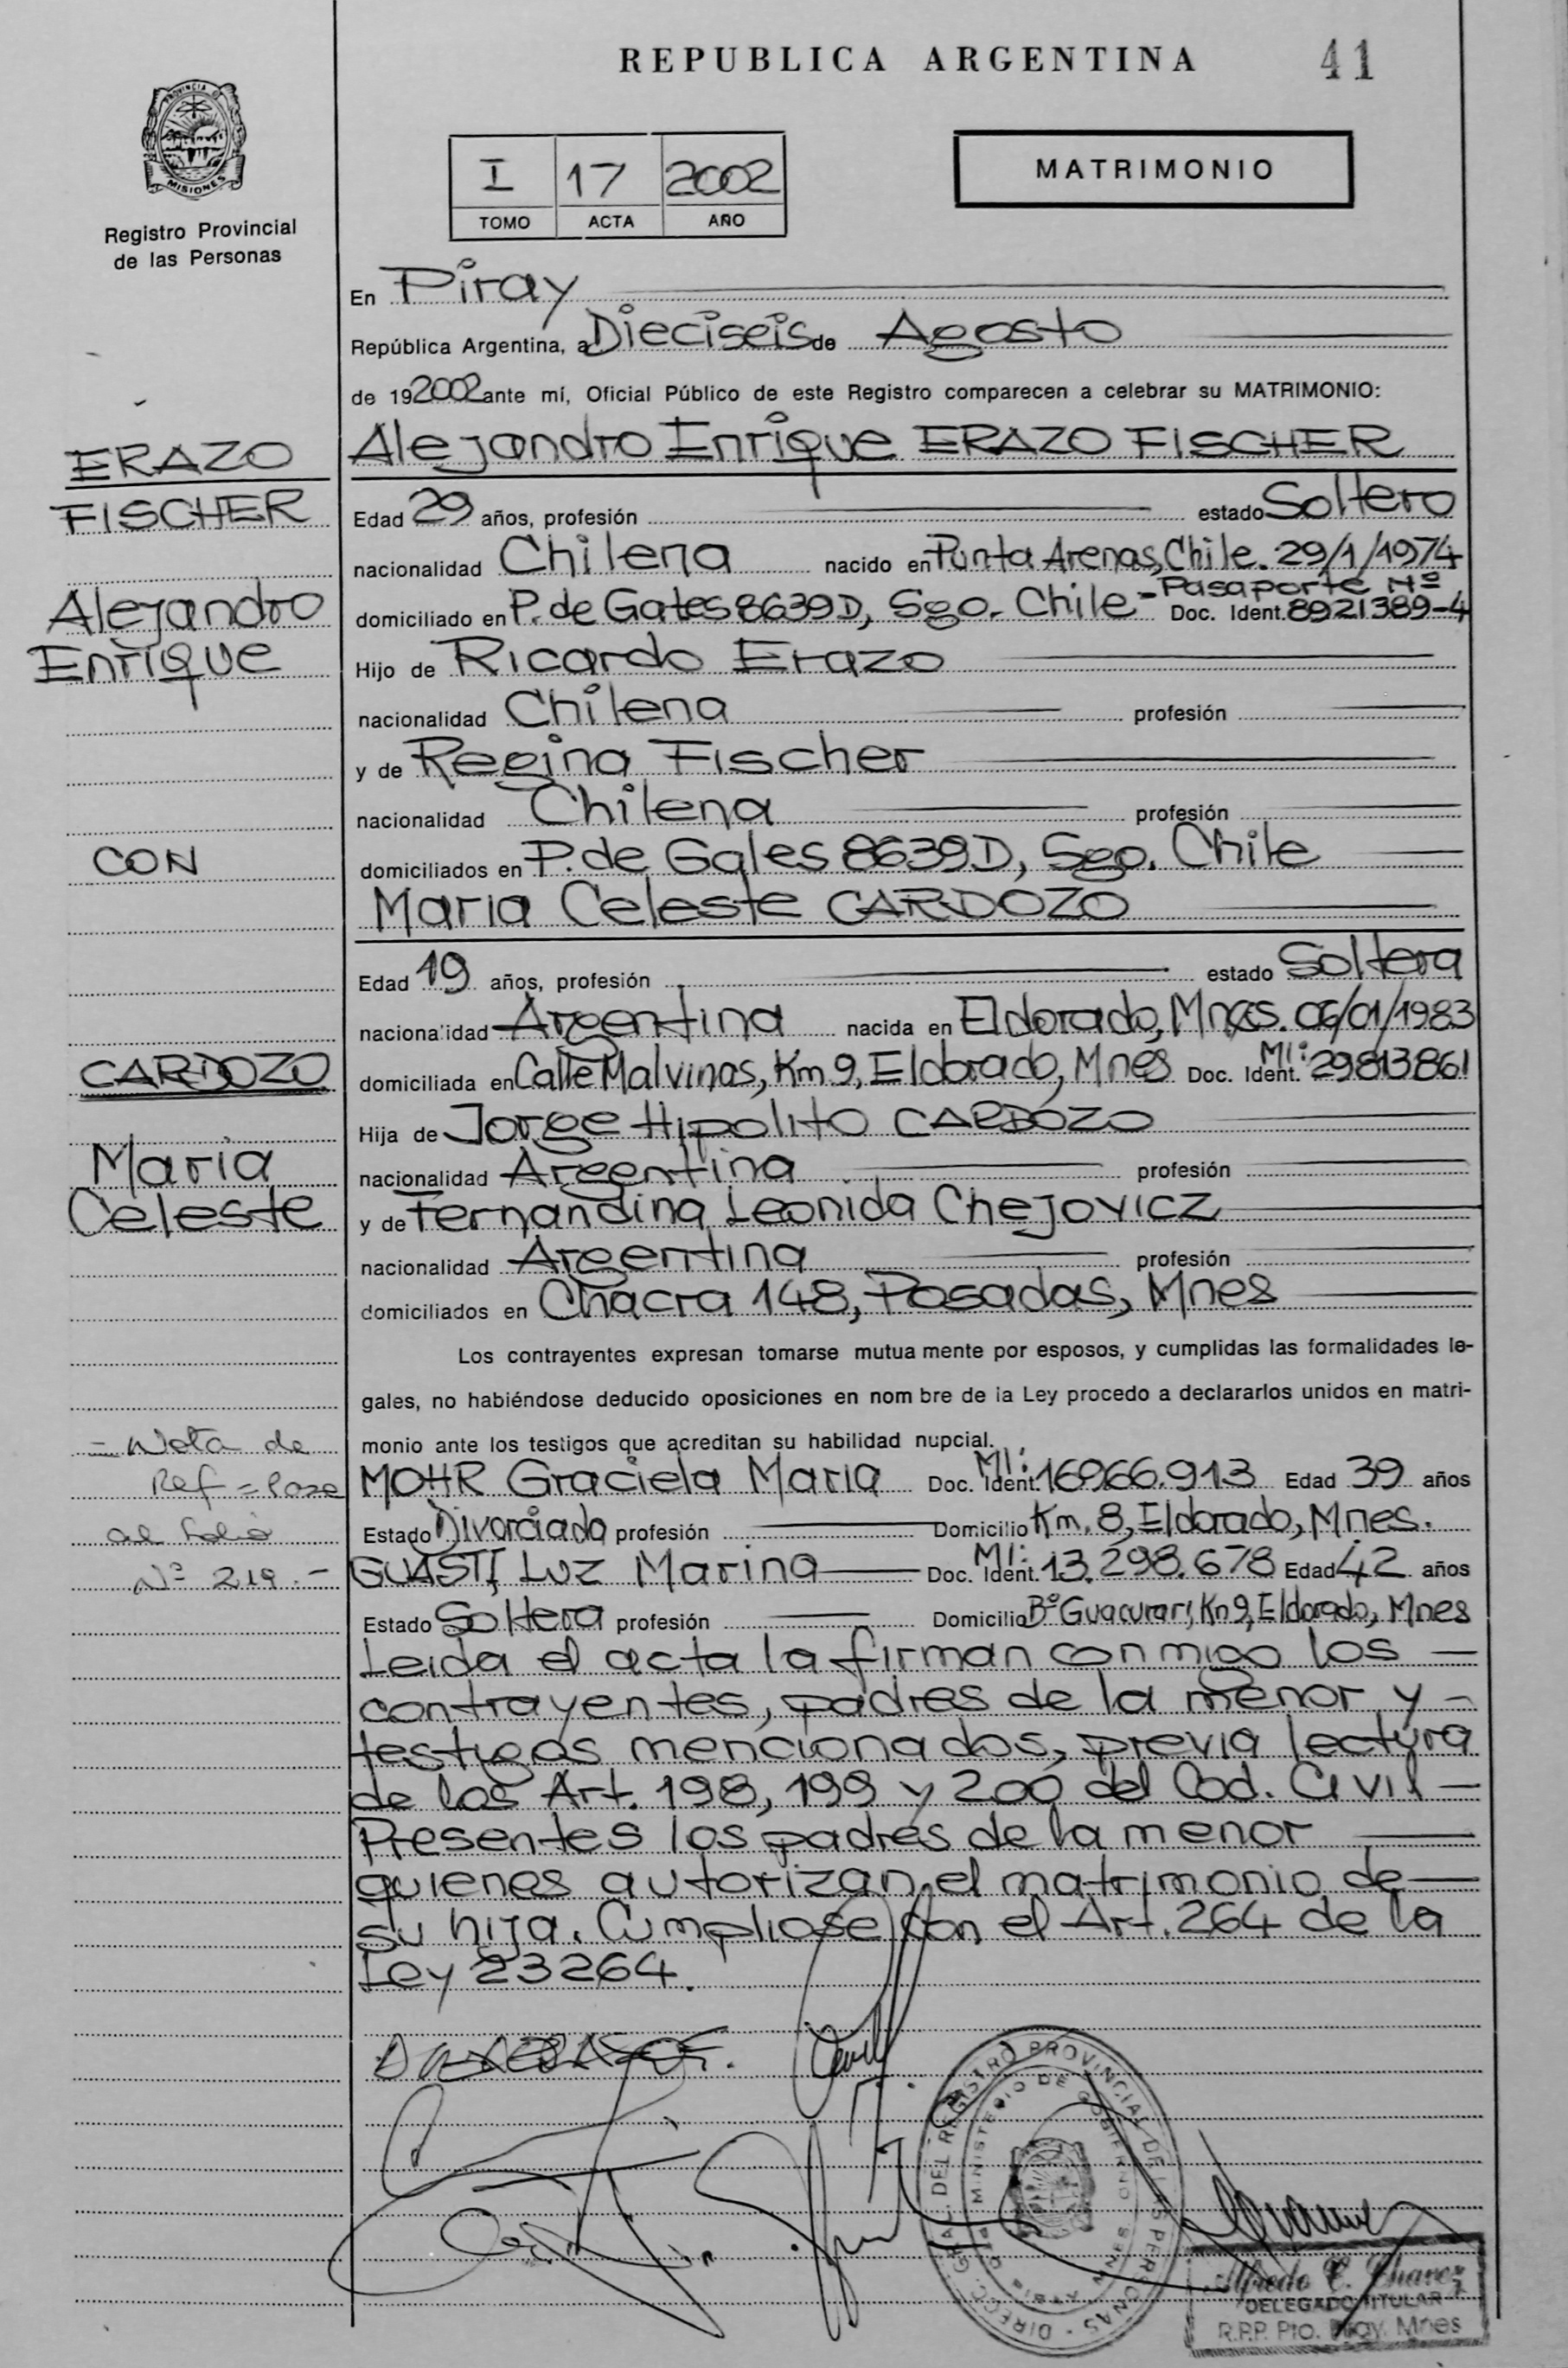 REPUBLICA ARGENTINA
41
PROVINCIA DE
MISIONES
Registro Provincial
de las Personas
I 17 2002
TOMO ACTA AÑO
MATRIMONIO
En Piray
República Argentina, a Dieciseis de Agosto
de 192002 ante mí, Oficial Público de este Registro comparecen a celebrar su MATRIMONIO:
Alejandro Enrique ERAZO FISCHER
Edad 29 años, profesión estado Soltero
nacionalidad Chilena nacido en Punta Arenas, Chile. 29/1/1974
Pasaporte Nº
domiciliado en P. de Gales 8639D, Sgo. Chile- Doc. Ident. 8921389-4
Hijo de Ricardo Erazo
nacionalidad Chilena profesión
y de Regina Fischer
nacionalidad Chilena profesión
domiciliados en P. de Gales 8639D, Sgo. Chile
Maria Celeste CARDOZO
Edad 19 años, profesión estado Soltera
nacionalidad Argentina nacida en Eldorado, 06/01/1983
MI:
domiciliada en Calle Malvinas, Km 9, Eldorado, Mnes Doc. Ident. 29813861
Hija de Jorge Hipolito CARDOZO
nacionalidad Argentina profesión
y de Fernandina Leonida Chejovicz
nacionalidad Argentina profesión
domiciliados en Chacra 148, Posadas, Mnes
Los contrayentes expresan tomarse mutua mente por esposos, y cumplidas las formalidades le-
gales, no habiéndose deducido oposiciones en nom bre de la Ley procedo a declararlos unidos en matri-
monio ante los testigos que acreditan su habilidad nupcial.
MI:
MOHR Graciela Maria Doc. Ident. 16.966.913 Edad 39 años
Estado Divorciada profesión Domicilio Km. 8, Eldorado, Mnes.
MI:
GUASTI Luz Marina Doc. Ident. 13.298.678 Edad 42 años
Estado Soltera profesión Domicilio Bº Guacurari, Km 9, Eldorado, Mnes
Leida el acta la firman conmigo los
contrayentes, padres de la menor y
testigos mencionados, previa lectura
de los Art. 198, 199 y 200 del Cod. Civil
Presentes los padres de la menor
quienes autorizan el matrimonio de
su hija. Cumpliose con el Art. 264 de la
Ley 23264.
ERAZO
FISCHER
Alejandro
Enrique
CON
CARDOZO
Maria
Celeste
- Nota de
Ref = Pase
al folio
Nº 219.-
DIRECC. GRAL. DEL REGISTRO PROVINCIAL DE LAS PERSONAS
MINISTERIO DE GOBIERNO
Alfredo C. Chavez
DELEGADO TITULAR
R.P.P. Pto. Piray. Mnes